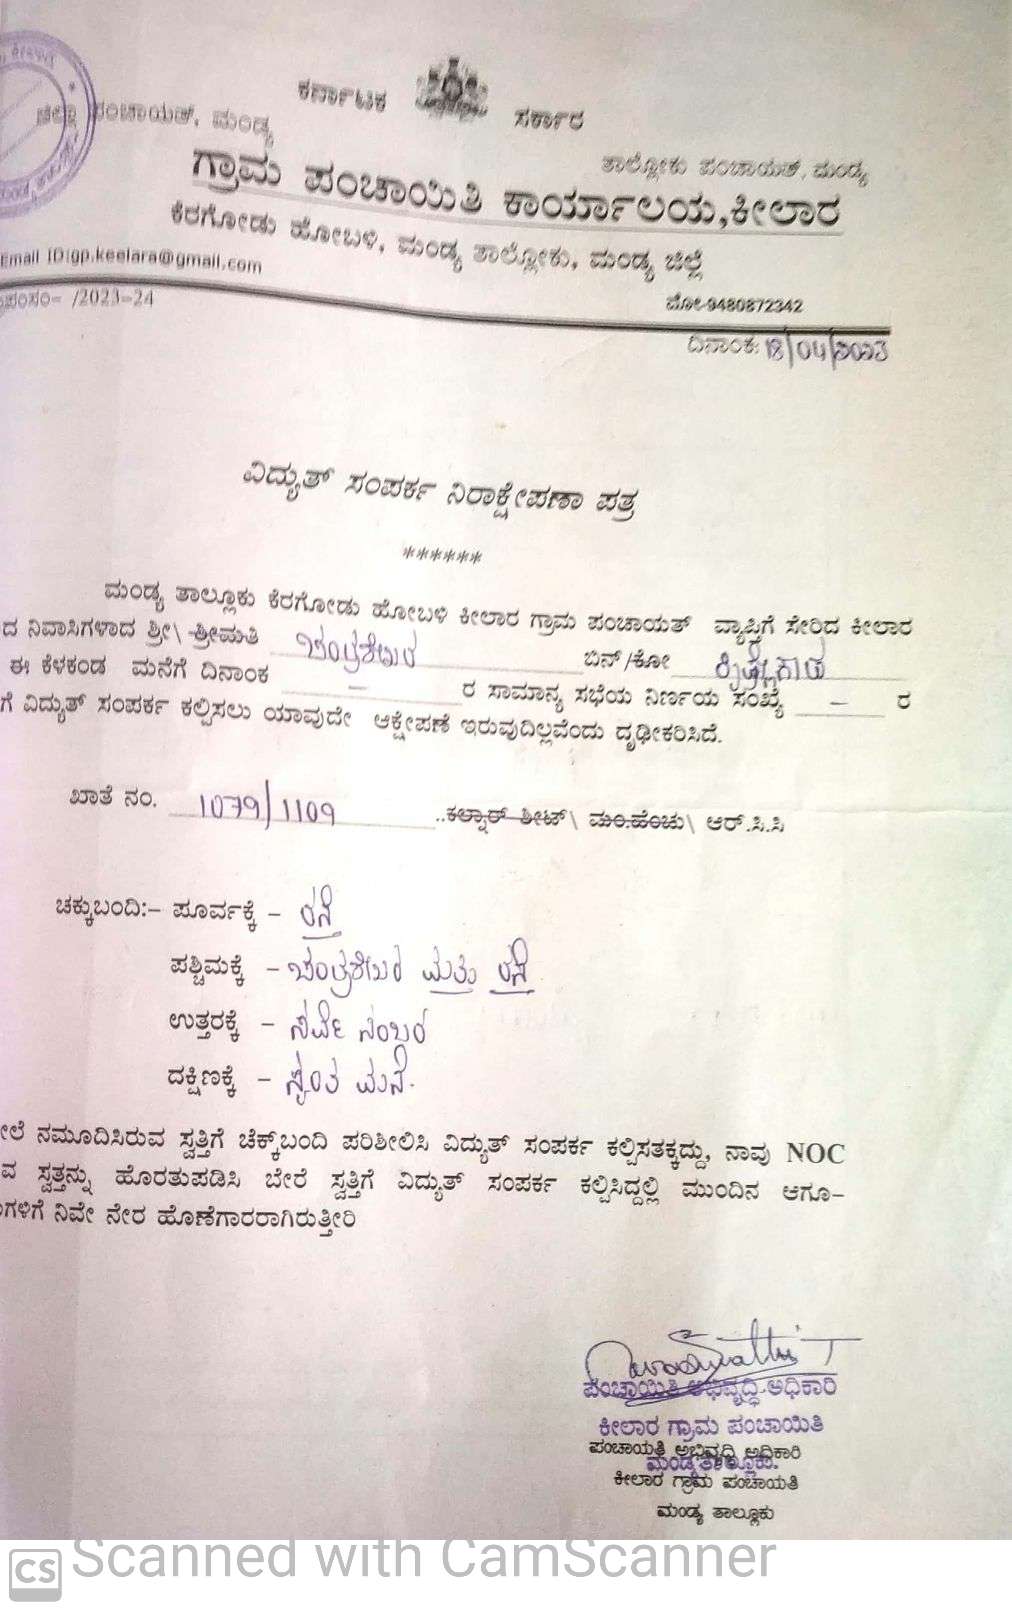 ಕರ್ನಾಟಕ ಸರ್ಕಾರ
ಜಿಲ್ಲಾ ಪಂಚಾಯತ್, ಮಂಡ್ಯ
ತಾಲ್ಲೋಕು ಪಂಚಾಯತ್, ಮಂಡ್ಯ
ಗ್ರಾಮ ಪಂಚಾಯಿತಿ ಕಾರ್ಯಾಲಯ,ಕೀಲಾರ
ಕೆರಗೋಡು ಹೋಬಳಿ, ಮಂಡ್ಯ ತಾಲ್ಲೋಕು, ಮಂಡ್ಯ ಜಿಲ್ಲೆ
Email ID:gp.keelara@gmail.com
/2023-24
ಮೋ-9480872342
ದಿನಾಂಕ: 18/04/2023
ವಿದ್ಯುತ್ ಸಂಪರ್ಕ ನಿರಾಕ್ಷೇಪಣಾ ಪತ್ರ
******
ಮಂಡ್ಯ ತಾಲ್ಲೂಕು ಕೆರಗೋಡು ಹೋಬಳಿ ಕೀಲಾರ ಗ್ರಾಮ ಪಂಚಾಯತ್ ವ್ಯಾಪ್ತಿಗೆ ಸೇರಿದ ಕೀಲಾರ
ದ ನಿವಾಸಿಗಳಾದ ಶ್ರೀ\ ಶ್ರೀಮತಿ ಚಂದ್ರಶೇಖರ ಬಿನ್ /ಕೋ
ಈ ಕೆಳಕಂಡ ಮನೆಗೆ ದಿನಾಂಕ – ರ ಸಾಮಾನ್ಯ ಸಭೆಯ ನಿರ್ಣಯ ಸಂಖ್ಯೆ – ರ
ಗೆ ವಿದ್ಯುತ್ ಸಂಪರ್ಕ ಕಲ್ಪಿಸಲು ಯಾವುದೇ ಆಕ್ಷೇಪಣೆ ಇರುವುದಿಲ್ಲವೆಂದು ದೃಢೀಕರಿಸಿದೆ.
ಖಾತೆ ನಂ. 1079/1109 ..ಕಲ್ನಾರ್ ಶೀಟ್\ ಮಂ.ಹೆಂಚು\ ಆರ್.ಸಿ.ಸಿ
ಚಕ್ಕುಬಂದಿ:– ಪೂರ್ವಕ್ಕೆ – ರಸ್ತೆ
ಪಶ್ಚಿಮಕ್ಕೆ – ಚಂದ್ರಶೇಖರ ಮತ್ತು ರಸ್ತೆ
ಉತ್ತರಕ್ಕೆ – ಸರ್ವೆ ನಂಬರ
ದಕ್ಷಿಣಕ್ಕೆ – ಸ್ವಂತ ಮನೆ.
ಲೆ ನಮೂದಿಸಿರುವ ಸ್ವತ್ತಿಗೆ ಚೆಕ್‌ಬಂದಿ ಪರಿಶೀಲಿಸಿ ವಿದ್ಯುತ್ ಸಂಪರ್ಕ ಕಲ್ಪಿಸತಕ್ಕದ್ದು, ನಾವು NOC
ವ ಸ್ವತ್ತನ್ನು ಹೊರತುಪಡಿಸಿ ಬೇರೆ ಸ್ವತ್ತಿಗೆ ವಿದ್ಯುತ್ ಸಂಪರ್ಕ ಕಲ್ಪಿಸಿದ್ದಲ್ಲಿ ಮುಂದಿನ ಆಗೂ–
ಗಳಿಗೆ ನಿವೇ ನೇರ ಹೊಣೆಗಾರರಾಗಿರುತ್ತೀರಿ
ಪಂಚಾಯಿತಿ ಅಭಿವೃದ್ಧಿ ಅಧಿಕಾರಿ
ಕೀಲಾರ ಗ್ರಾಮ ಪಂಚಾಯಿತಿ
ಪಂಚಾಯತಿ ಅಭಿವೃದ್ಧಿ ಅಧಿಕಾರಿ
ಮಂಡ್ಯ ತಾಲ್ಲೂಕು.
ಕೀಲಾರ ಗ್ರಾಮ ಪಂಚಾಯತಿ
ಮಂಡ್ಯ ತಾಲ್ಲೂಕು
CS Scanned with CamScanner